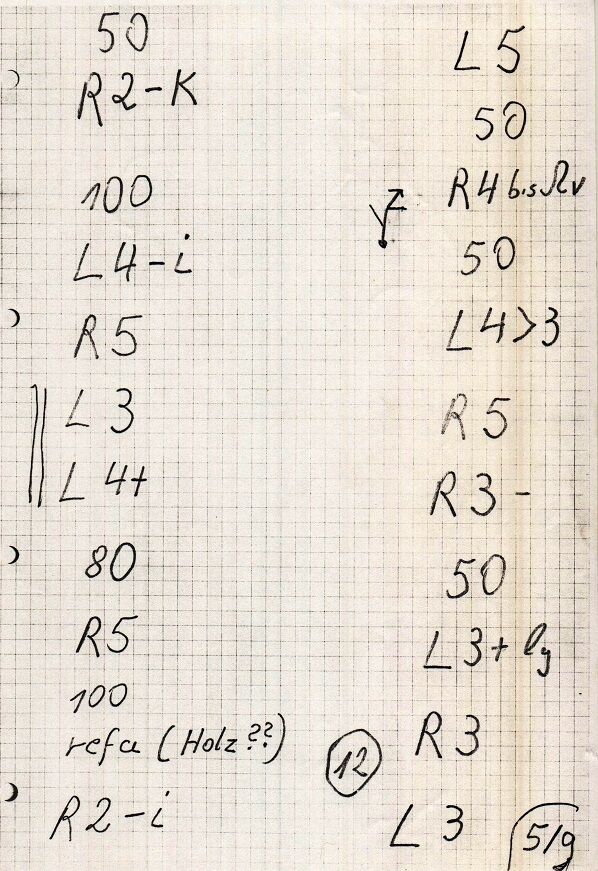 50
R2-K
100
L4-i
R5
L3
L4+
80
R5
100
refa (Holz??)
R2-i
L5
50
R4 bis
50
L4>3
R5
R3-
50
L3+ lg
R3
12
L3
5/9